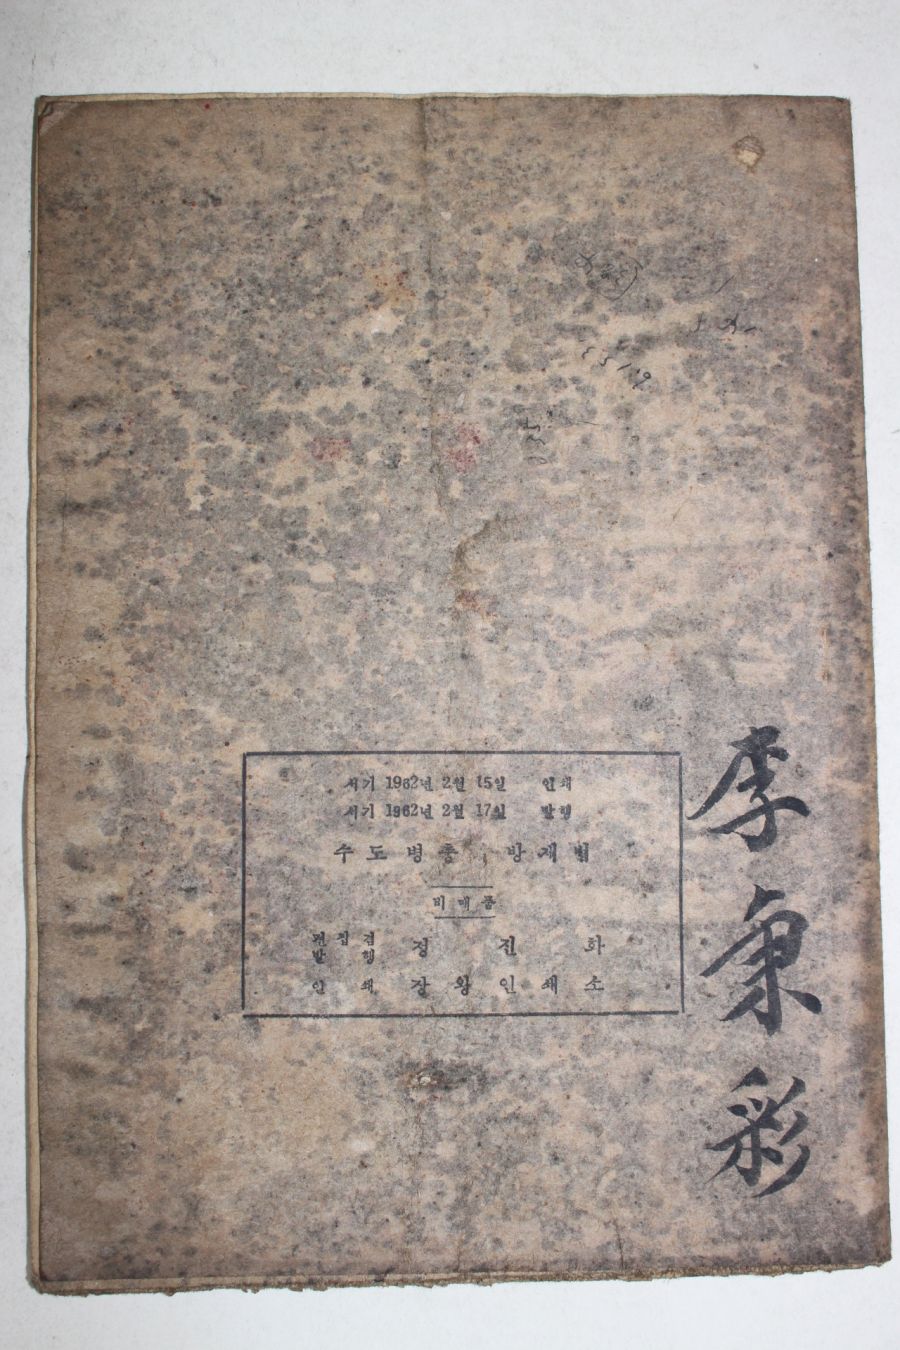 서기 1962년 2월 15일 인쇄
서기 1962년 2월 17일 발행
수도병종 방제법
비매품
편집겸
발행 정진화
인쇄 장왕인쇄소
李秉彩